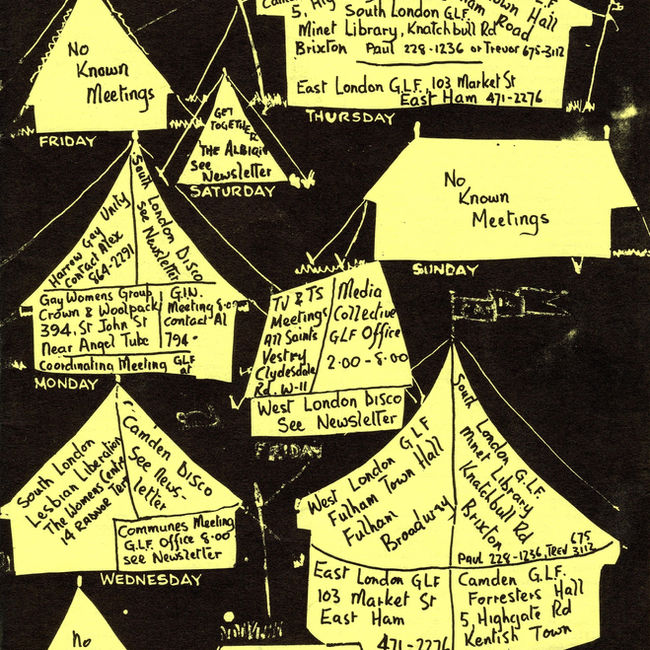 Town Hall
G.L.F.
5, Hig
South London GLF
Road
Minet Library, Knatchbull Rd
Brixton Paul 228-1236 or Trevor 675-3112
East London G.L.F., 103 Market St
East Ham 471-2276
THURSDAY
No
Known
Meetings
FRIDAY
GET
TOGETHER
THE ALBION
See
Newsletter
SATURDAY
No
Known
Meetings
SUNDAY
Harrow Gay Unity
Contact Alex
864-2291
South London Disco
See Newsletter
Gay Womens Group
Crown & Woolpack
394, St John St
Near Angel Tube
G.I.N.
Meeting 8.00
contact Al
794-
Coordinating Meeting GLF
at
MONDAY
TV & TS
Meetings
All Saints
Vestry
Clydesdale
Rd. W-11
Media
Collective
GLF Office
2.00-8.00
West London Disco
See Newsletter
FRIDAY
South London
Lesbian Liberation
The Womens Centre
14 RADNOR Terr
Camden Disco
See News-
letter
Communes Meeting
G.L.F. Office 8.00
see Newsletter
WEDNESDAY
West London GLF
Fulham Town Hall
Fulham
Broadway
South London G.L.F.
Minet Library
Knatchbull Rd
Brixton
Paul 228-1236, Trev 675
3112
East London GLF
103 Market St
East Ham
471-2276
Camden G.L.F.
Forresters Hall
5, Highgate Rd
Kentish Town
No